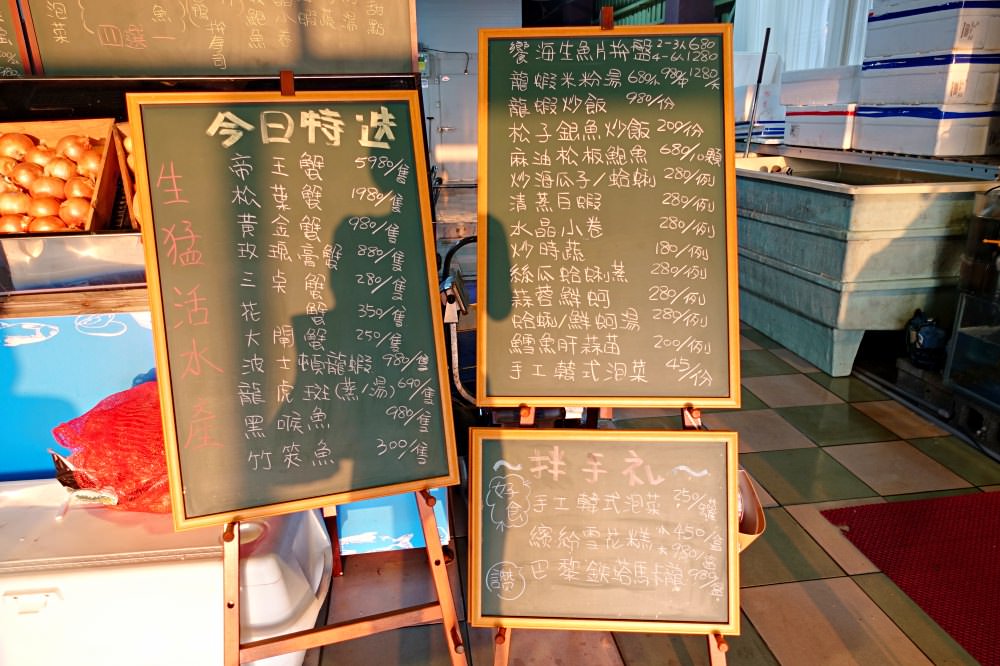 泡菜
四選一
鮑魚
小卷
甜點
今日特选
生猛活水產
帝王蟹 5980/隻
松葉蟹 1980/隻
黃金蟹 980/隻
玫瑰膏蟹 880/隻
三点蟹 280/隻
花蟹 350/隻
大閘蟹 250/隻
波士頓龍蝦 980/隻
龍虎斑(蒸/湯) 690/隻
黑喉魚 980/隻
竹筴魚 300/隻
饗海生魚片拚盤 2-3人680 4-6人1280
龍蝦米粉湯 680/小 980/中 1280/大
龍蝦炒飯 980/份
松子銀魚炒飯 200/份
麻油松板鮑魚 680/10顆
炒海瓜子/蛤蜊 280/例
清蒸白蝦 280/例
水晶小卷 280/例
炒時蔬 180/例
絲瓜蛤蜊蒸 280/例
蒜蓉鮮蚵 280/例
蛤蜊/鮮蚵湯 280/例
鱈魚肝蒜苗 200/例
手工韓式泡菜 45/份
~拌手礼~
好食
手工韓式泡菜 250/罐
繽紛雪花糕 小450/盒 大980/盒
讚
巴黎鐵塔馬卡龍 980/盒